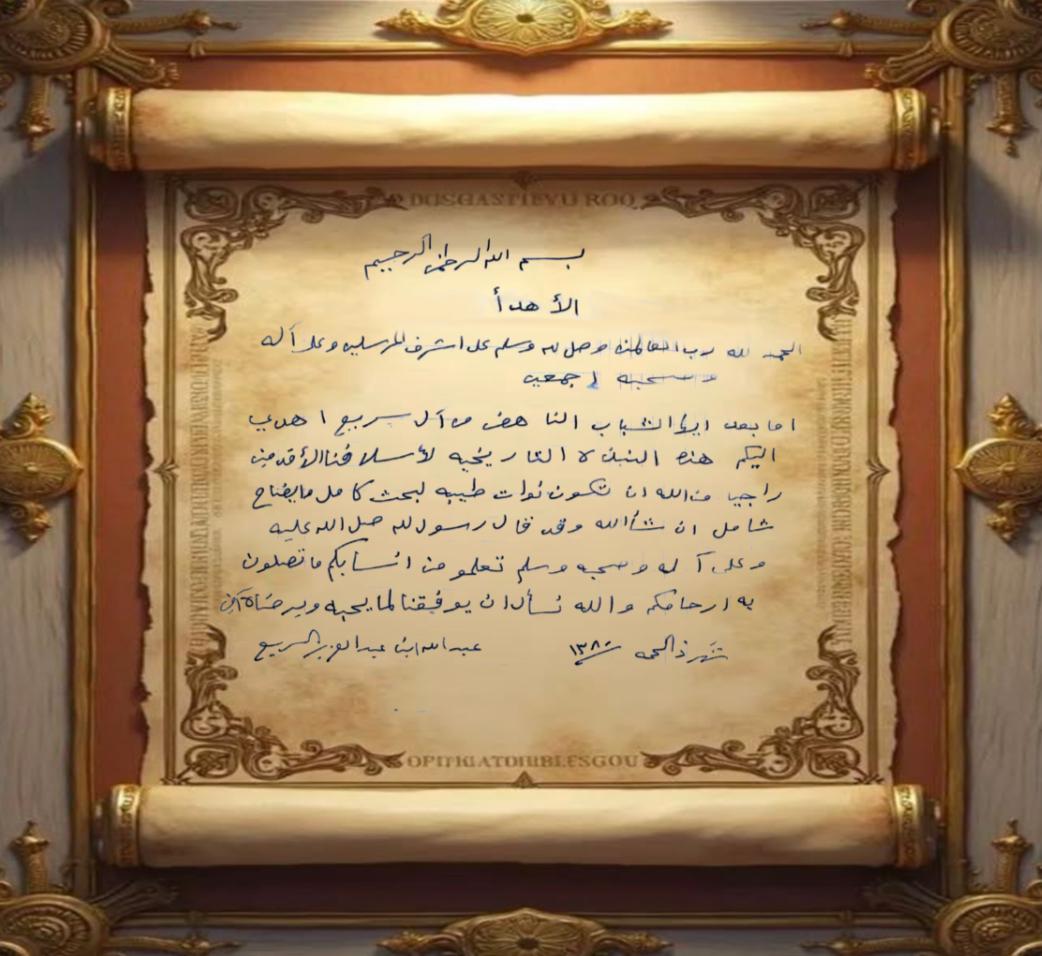 DOSGASTIEYU ROO
بسم الله الرحمن الرحيم
الأهدأ
الحمد لله رب العالمين وصل لله وسلم على اشرف المرسلين وعلى آله
وصحبه اجمعين
اما بعد ايها الشباب الناهض من آل سريع اهدي
اليكم هذه النبذه التاريخيه لأسلافنا الأقدمين
راجيا من الله ان تكون نوات طيبه لبحث كامل
شامل ان شأالله وقد قال رسول لله صل الله عليه
وعلى آله وصحبه وسلم تعلمو من انسابكم ماتصلون
به ارحامكم والله نسأل ان يوفقنا لما يحبه ويرضاه آمين
شهر ذالحجه ١٣٨٠ عبدالله ابن عبدالعزيز السريع
OPITKIATOHIBLESGOU